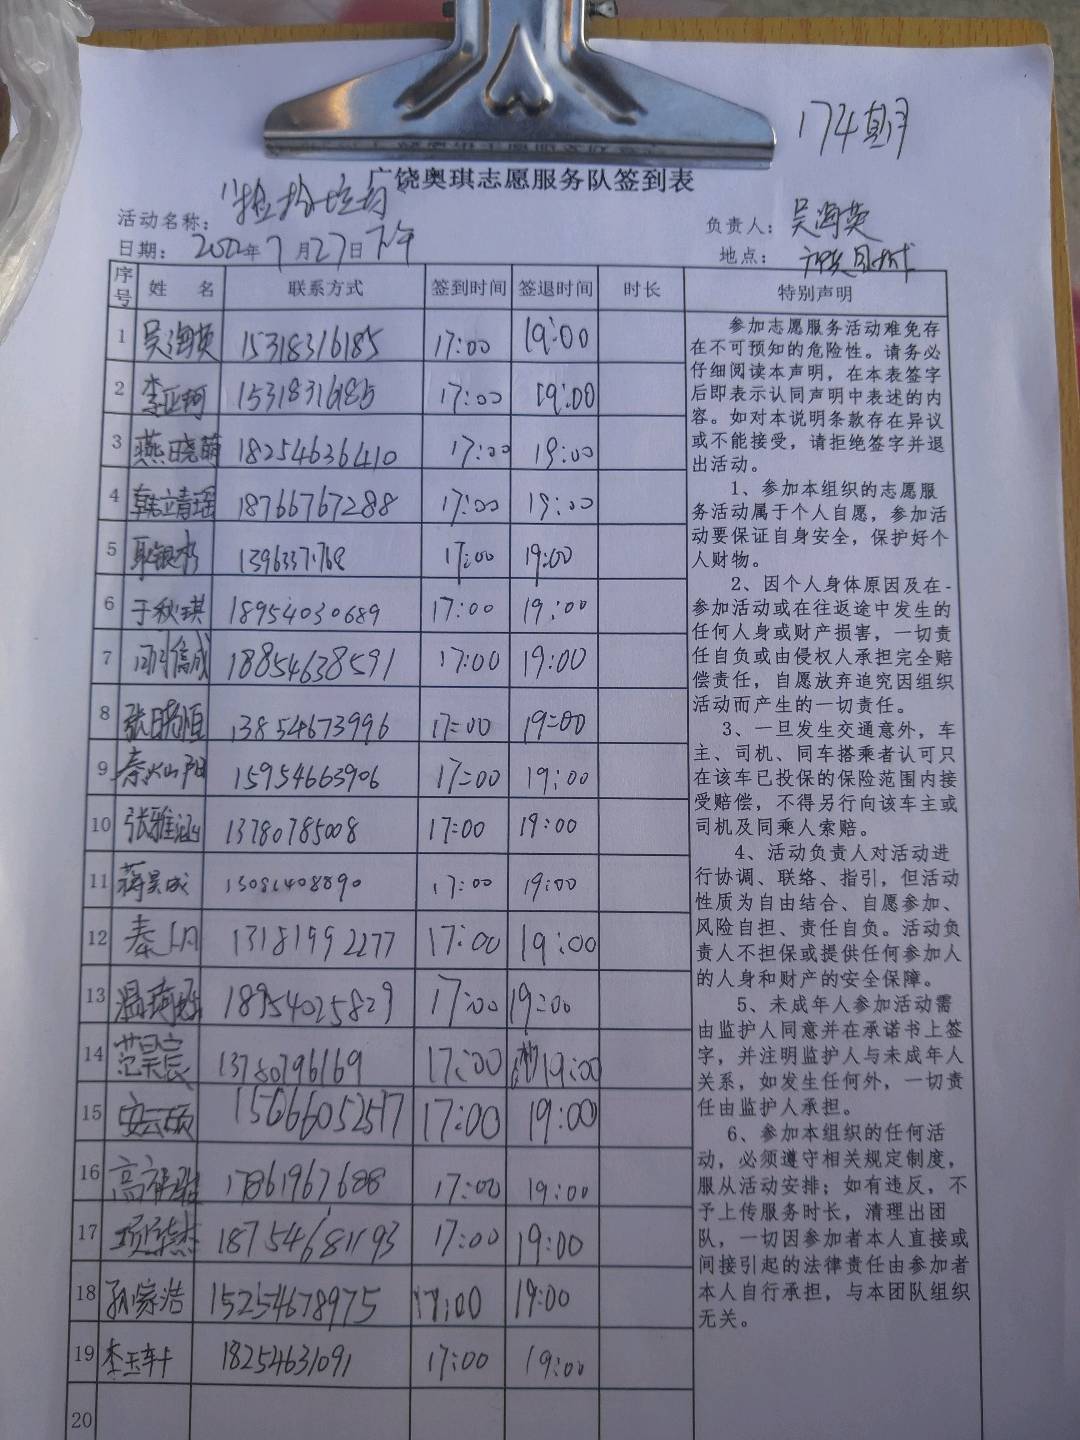 174期
广饶奥琪志愿服务队签到表
活动名称： 负责人：吴海英
日期：2022年7月27日下午 地点：
序号 姓名 联系方式 签到时间 签退时间 时长 特别声明
1 吴海英 15318316185 17:00 19:00
2 李亚珂 15318316185 17:00 19:00
3 燕晓萌 18254636410 17:00 19:00
4 韩立青瑶 18766767288 17:00 19:00
5 耿银 17:00 19:00
6 于秋琪 18954030689 17:00 19:00
7 信成 18854638591 17:00 19:00
8 张晓恒 13854673996 17:00 19:00
9 秦 阳 15954663906 17:00 19:00
10 张雅涵 13780785008 17:00 19:00
11 蒋昊成 13081408890 17:00 19:00
12 秦 13181992277 17:00 19:00
13 温 18954025829 17:00 19:00
14 范昊宸 13780796169 17:00 19:00
15 安云硕 15066052517 17:00 19:00
16 高 17861967688 17:00 19:00
17 项 杰 18754681193 17:00 19:00
18 孙家浩 15254678975 17:00 19:00
19 李玉轩 18254631091 17:00 19:00
20
参加志愿服务活动难免存
在不可预知的危险性。请务必
仔细阅读本声明，在本表签字
后即表示认同声明中表述的内
容。如对本说明条款存在异议
或不能接受，请拒绝签字并退
出活动。
1、参加本组织的志愿服
务活动属于个人自愿，参加活
动要保证自身安全，保护好个
人财物。
2、因个人身体原因及在
参加活动或在往返途中发生的
任何人身或财产损害，一切责
任自负或由侵权人承担完全赔
偿责任，自愿放弃追究因组织
活动而产生的一切责任。
3、一旦发生交通意外，车
主、司机、同车搭乘者认可只
在该车已投保的保险范围内接
受赔偿，不得另行向该车主或
司机及同乘人索赔。
4、活动负责人对活动进
行协调、联络、指引，但活动
性质为自由结合、自愿参加、
风险自担、责任自负。活动负
责人不担保或提供任何参加人
的人身和财产的安全保障。
5、未成年人参加活动需
由监护人同意并在承诺书上签
字，并注明监护人与未成年人
关系，如发生任何外，一切责
任由监护人承担。
6、参加本组织的任何活
动，必须遵守相关规定制度，
服从活动安排；如有违反，不
予上传服务时长，清理出团
队，一切因参加者本人直接或
间接引起的法律责任由参加者
本人自行承担，与本团队组织
无关。